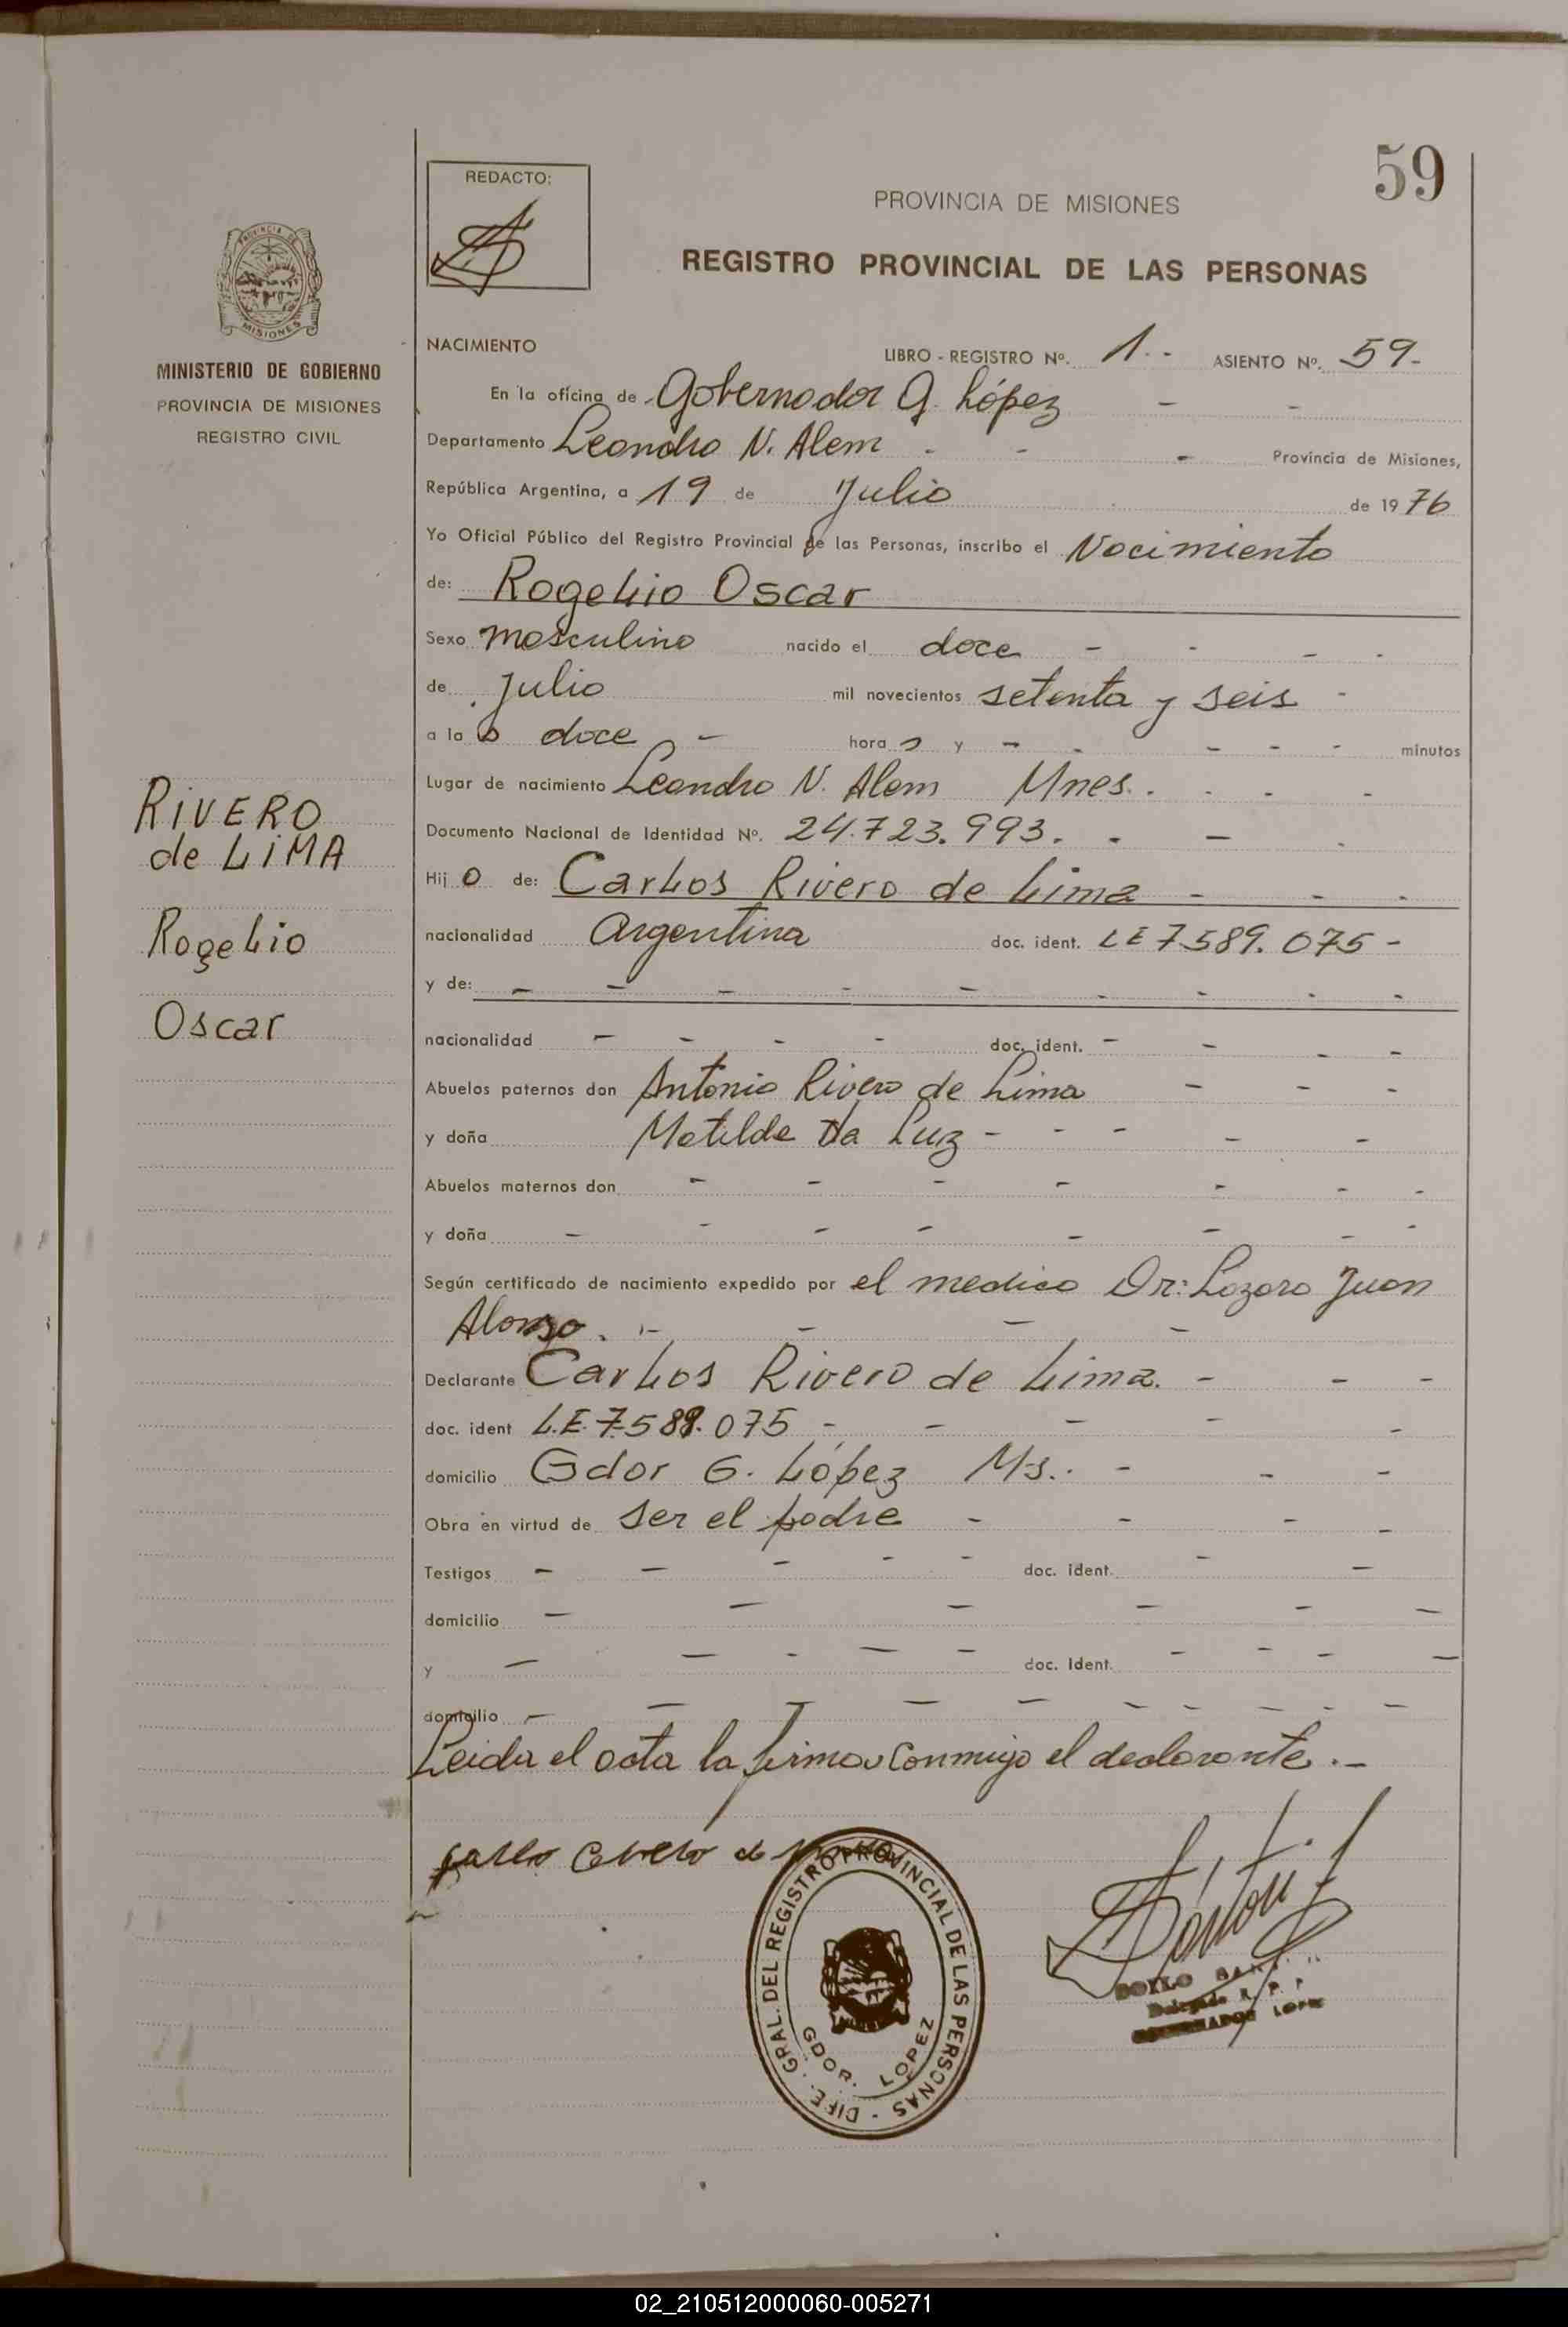 59
REDACTO:
PROVINCIA DE MISIONES
REGISTRO PROVINCIAL DE LAS PERSONAS
PROVINCIA DE
MISIONES
MINISTERIO DE GOBIERNO
PROVINCIA DE MISIONES
REGISTRO CIVIL
NACIMIENTO LIBRO - REGISTRO Nº. 1.- ASIENTO Nº. 59.-
En la oficina de Gobernador G. López - -
Departamento Leandro N. Alem - - - Provincia de Misiones,
República Argentina, a 19 de Julio de 1976
Yo Oficial Público del Registro Provincial de las Personas, inscribo el Nacimiento
de: Rogelio Oscar
Sexo masculino nacido el doce - - - -
de Julio mil novecientos setenta y seis -
a las doce - horas y - - - - - minutos
Lugar de nacimiento Leandro N. Alem Mnes. - - - -
Documento Nacional de Identidad Nº. 24.723.993. - - -
RIVERO
de LIMA
Rogelio
Oscar
Hijo de: Carlos Rivero de Lima - - -
nacionalidad Argentina doc. ident. LE 7.589.075 -
y de: - - - - - - - - -
nacionalidad - - - - doc. ident. - - - -
Abuelos paternos don Antonio Rivero de Lima - - -
y doña Matilde Da Luz - - - - -
Abuelos maternos don - - - - - - -
y doña - - - - - - - -
Según certificado de nacimiento expedido por el medico Dr: Lazaro Juan
Alonso. - - - -
Declarante Carlos Rivero de Lima. - - -
doc. ident L.E. 7.589.075 - - - - -
domicilio Gdor G. López Ms. - - - -
Obra en virtud de ser el padre - - - -
Testigos - - - - - doc. ident. - -
domicilio - - - - - -
y - - - - - doc. Ident. - - - -
domicilio - - - - - - - - - -
Leida el acta la firma conmigo el declarante.-
GRAL. DEL REGISTRO PROVINCIAL DE LAS PERSONAS - DIFE.
GDOR. LOPEZ
Delegado R. P. P.
GOBERNADOR LOPEZ
02_210512000060-005271